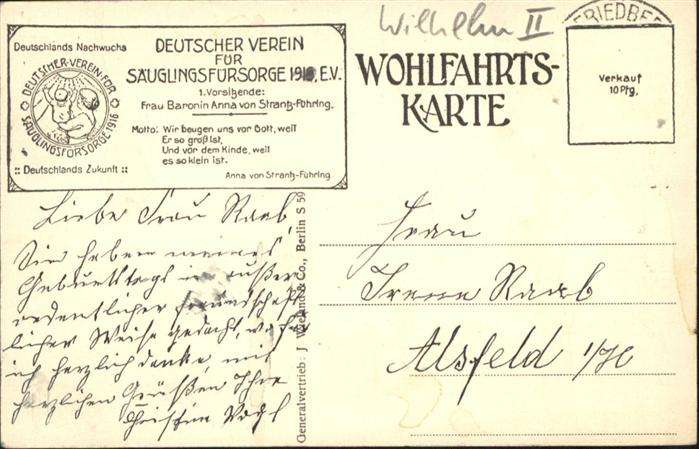 Wilhelm II
FRIEDBE
Deutschlands Nachwuchs
DEUTSCHER·VEREIN·FÜR
SÄUGLINGSFÜRSORGE 1916
:: Deutschlands Zukunft ::
DEUTSCHER VEREIN
FÜR
SÄUGLINGSFÜRSORGE 1916, E.V.
1. Vorsitzende:
Frau Baronin Anna von Strantz-Führing.
Motto: Wir beugen uns vor Gott, weil
Er so groß ist,
Und vor dem Kinde, weil
es so klein ist.
Anna von Strantz-Führing
WOHLFAHRTS-
KARTE
Verkauf
10 Pfg.
Liebe Frau Raab,
Sie haben meines
Geburtstags in außer
ordentlicher freundschaft
licher Weise gedacht, wofür
ich herzlich danke, mit
herzlichen Grüßen Ihre
Christine Vogl
Generalvertrieb: J. Wieland & Co., Berlin S 59
Frau
Irene Raab
Alsfeld